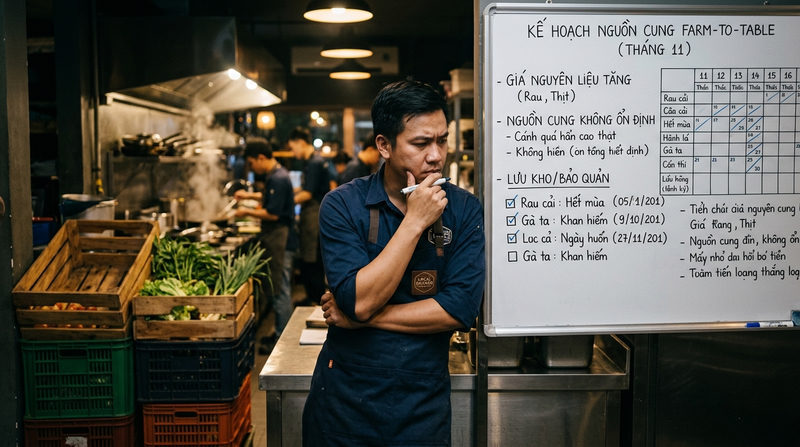 KẾ HOẠCH NGUỒN CUNG FARM-TO-TABLE
(THÁNG 11)
- GIÁ NGUYÊN LIỆU TĂNG
(Rau, Thịt)
- NGUỒN CUNG KHÔNG ỔN ĐỊNH
- Cánh quá hấn cao thật
- Không hiến (ơn tổng tiết định)
- LƯU KHO/BẢO QUẢN
Rau cải: Hết mùa (05/1/201)
Gà ta: Khan hiếm (9/10/201)
Loc cả: Ngày huốn (27/11/201)
Gà ta: Khan hiếm
11 12 13 14 15 16
Rau cải
Hết mùa
Hành lá
Gà ta
Cần thi
- Tiếh chái giá nguyên cung
Giá Rang, Thịt
- Nguồn cung đỉn, không ổn
- Mấy nhở dai hồi bó tiến
- Toàm tiến loạng thắng log
LOCAL